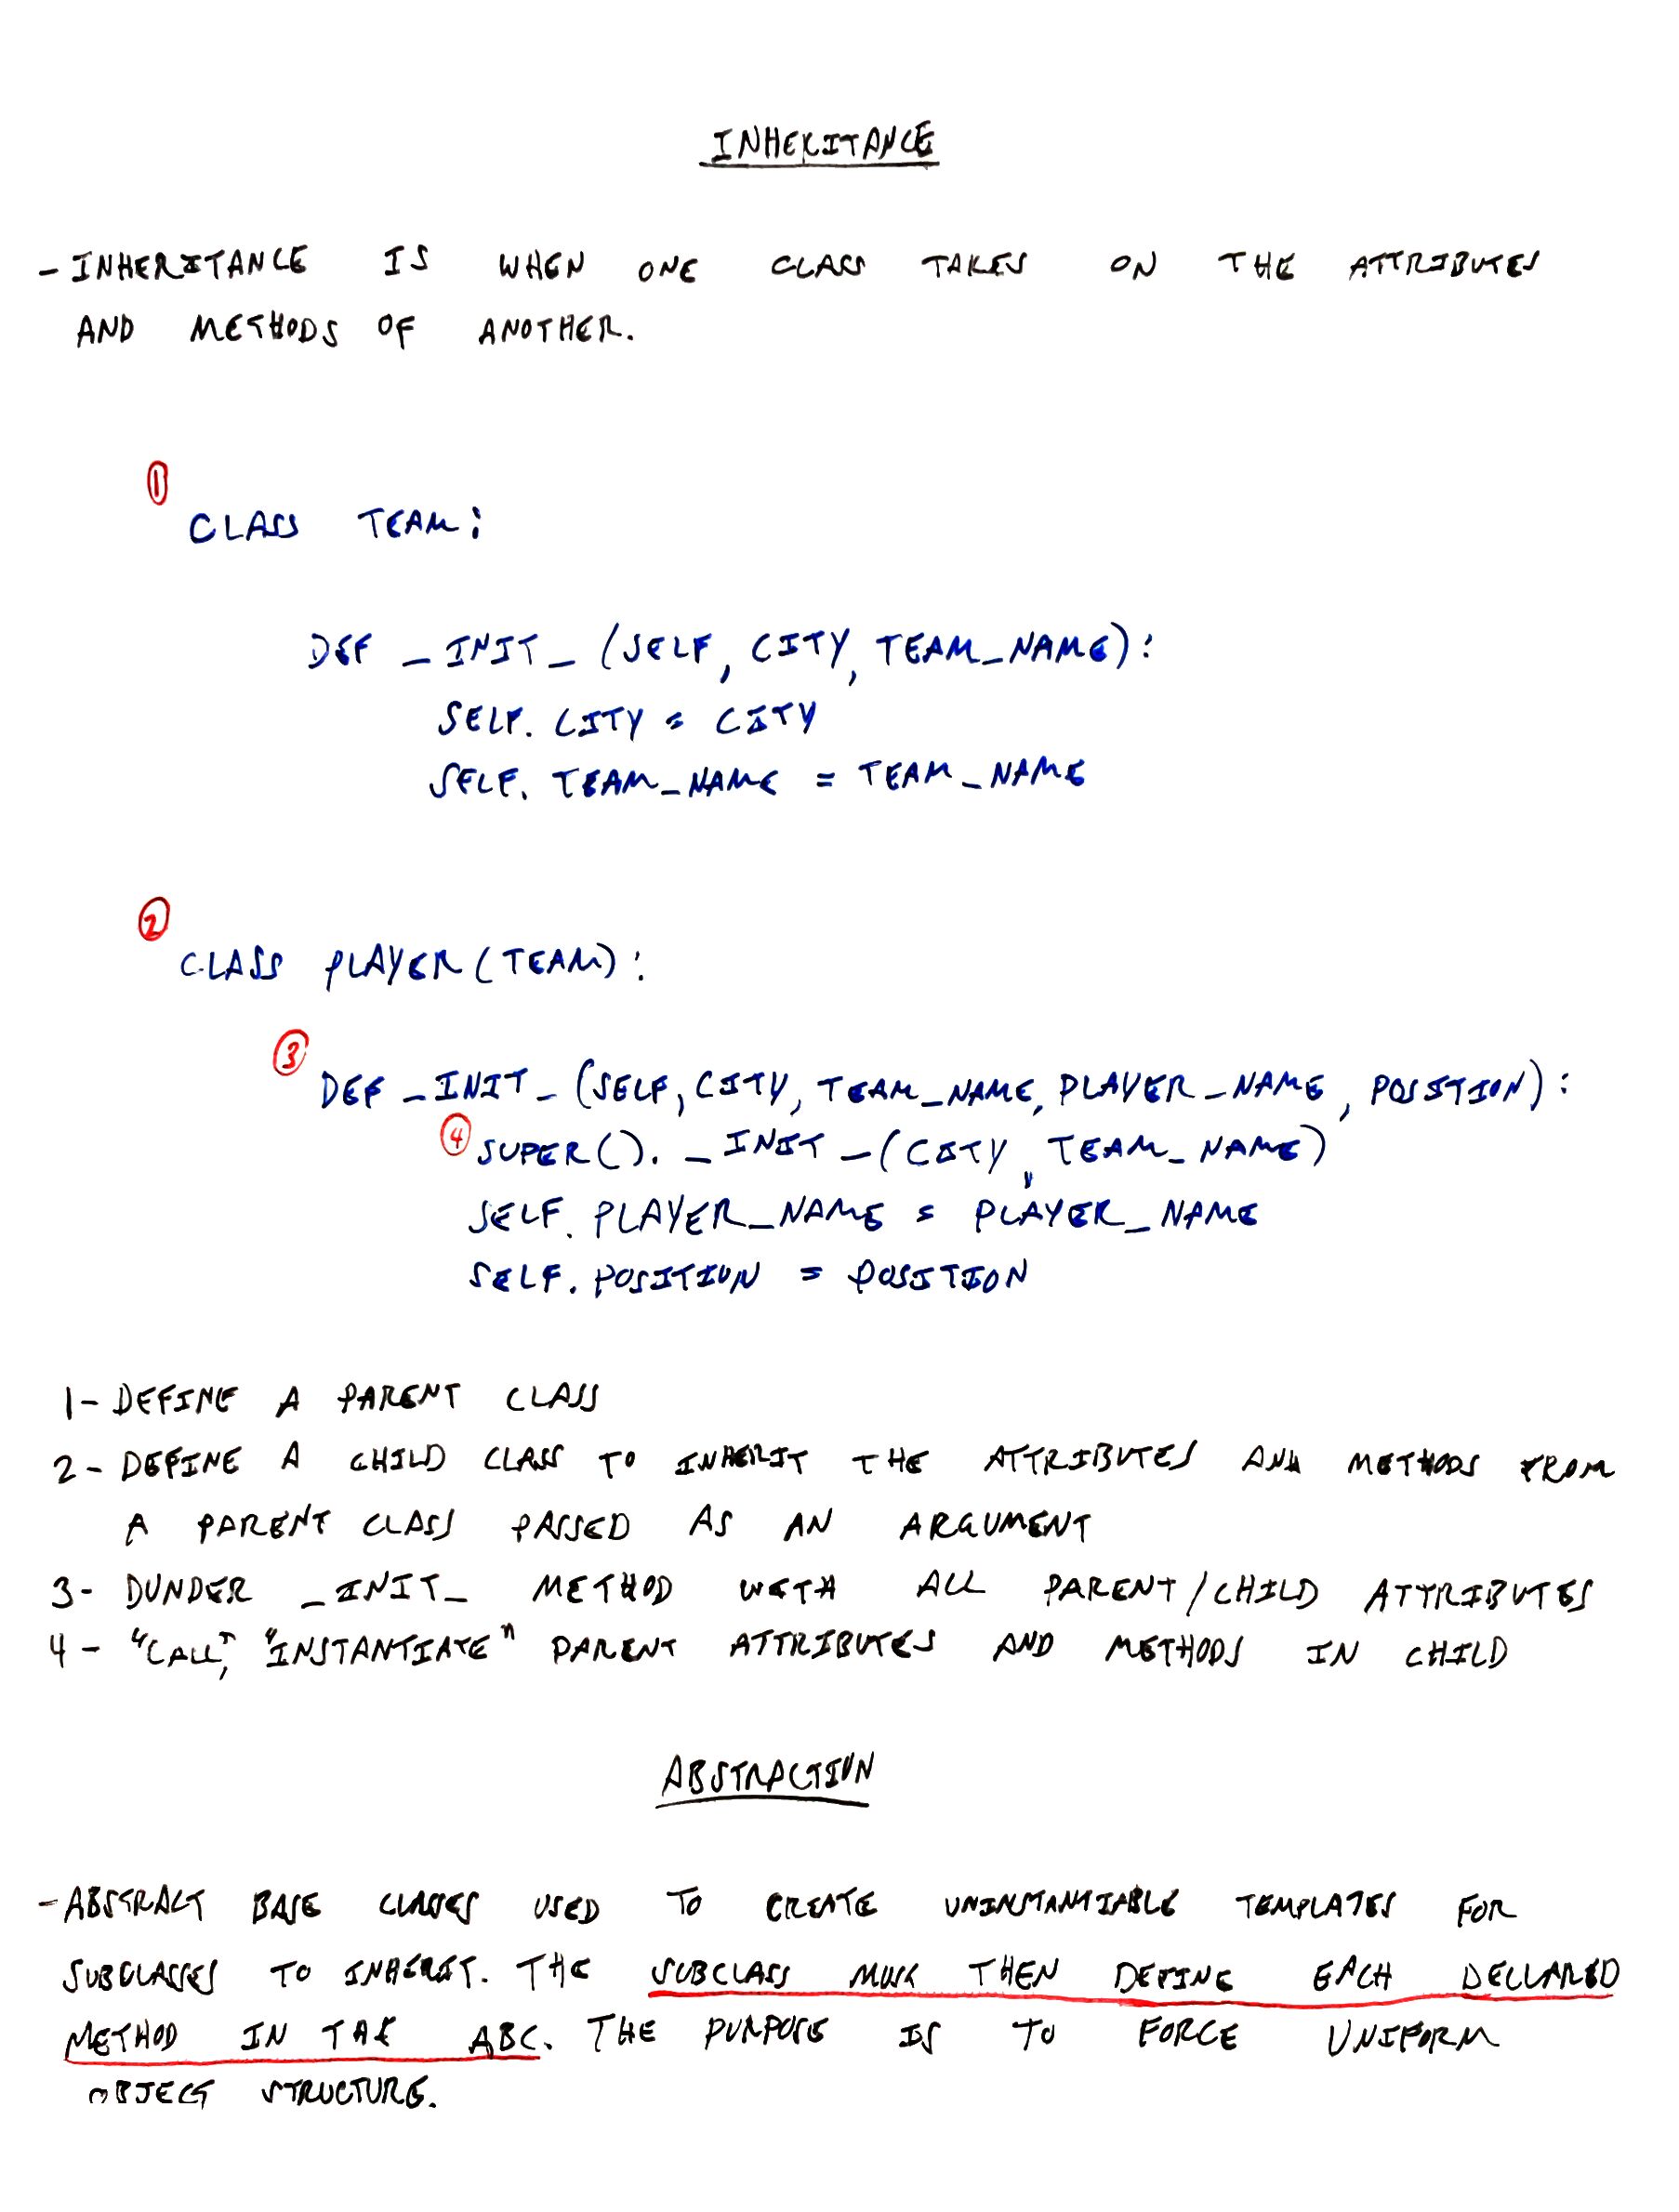 INHERITANCE
- INHERITANCE IS WHEN ONE CLASS TAKES ON THE ATTRIBUTES
AND METHODS OF ANOTHER.
①
CLASS TEAM:
DEF _INIT_ (SELF, CITY, TEAM_NAME):
SELF. CITY = CITY
SELF. TEAM_NAME = TEAM_NAME
②
CLASS PLAYER (TEAM):
③
DEF _INIT_ (SELF, CITY, TEAM_NAME, PLAYER_NAME, POSITION):
④ SUPER(). _INIT_(CITY, TEAM_NAME)
SELF. PLAYER_NAME = PLAYER_NAME
SELF. POSITION = POSITION
1- DEFINE A PARENT CLASS
2- DEFINE A CHILD CLASS TO INHERIT THE ATTRIBUTES AND METHODS FROM
A PARENT CLASS PASSED AS AN ARGUMENT
3- DUNDER _INIT_ METHOD WITH ALL PARENT/CHILD ATTRIBUTES
4- "CALL", "INSTANTIATE" PARENT ATTRIBUTES AND METHODS IN CHILD
ABSTRACTION
- ABSTRACT BASE CLASSES USED TO CREATE UNINSTANTIABLE TEMPLATES FOR
SUBCLASSES TO INHERIT. THE SUBCLASS MUST THEN DEFINE EACH DECLARED
METHOD IN THE ABC. THE PURPOSE IS TO FORCE UNIFORM
OBJECT STRUCTURE.